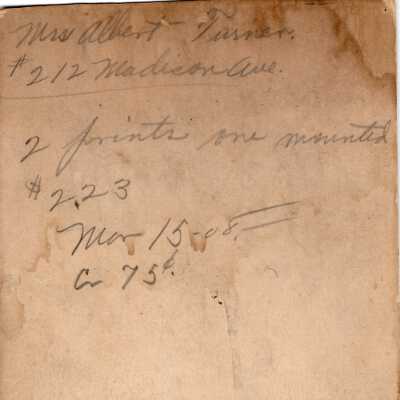 Mrs Albert Turner.
#212 Madison Ave.
2 prints one mounted
#223
Mar 15-08.
Cr 75¢.